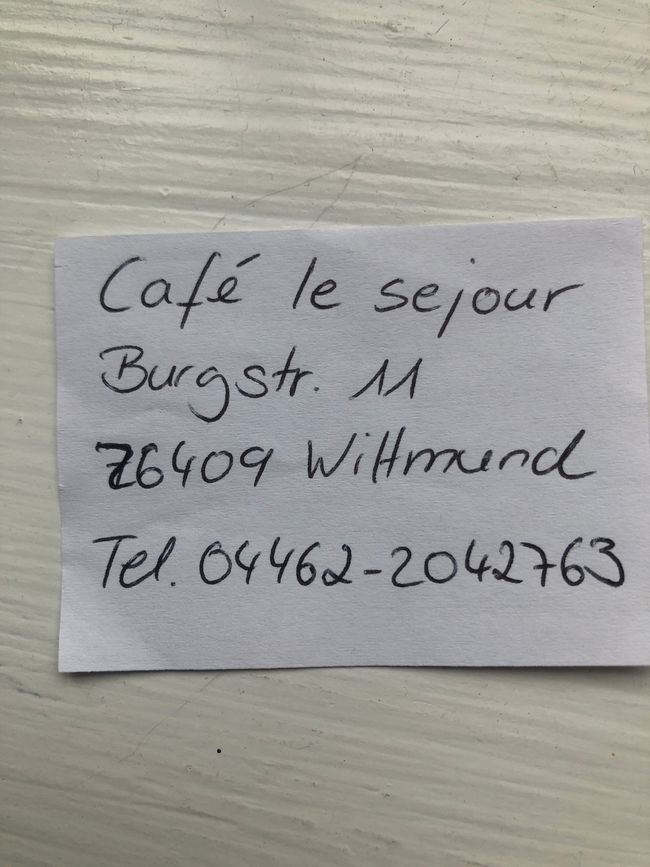 Café le sejour
Burgstr. 11
26409 Wittmund
Tel. 04462-2042763